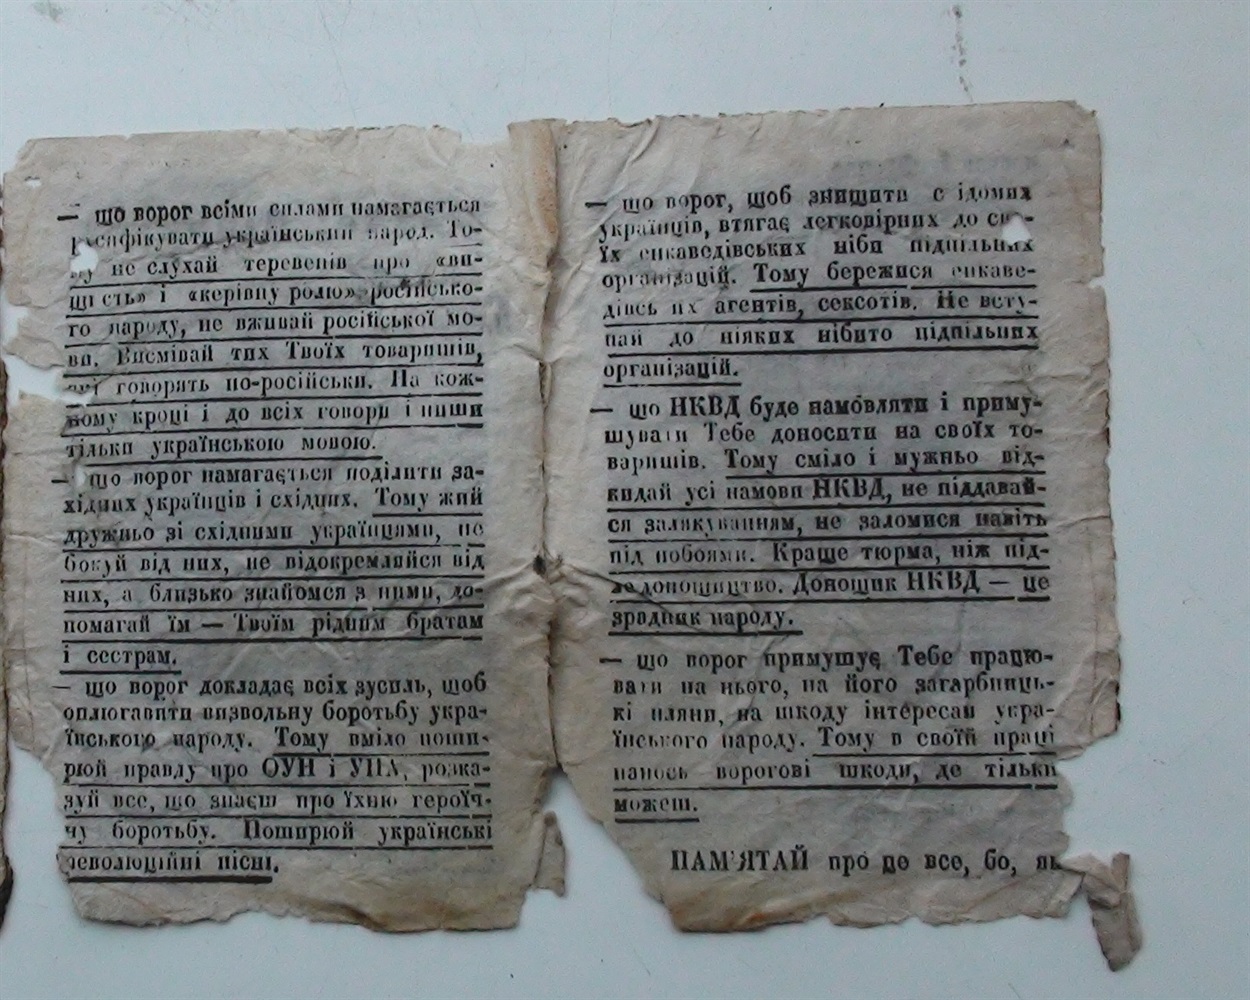 — що ворог всіми силами намагається
русифікувати український народ. То-
му не слухай теревенів про «ви-
щість» і «керівну ролю» російсько-
го народу, не вживай російської мо-
ви. Висмівай тих Твоїх товаришів,
які говорять по-російськи. На кож-
ному кроці і до всіх говори і пиши
тільки українською мовою.
— що ворог намагається поділити за-
хідних українців і східних. Тому жий
дружньо зі східними українцями, не
бокуй від них, не відокремлюйся від
них, а близько знайомся з ними, до-
помагай їм — Твоїм рідним братам
і сестрам.
— що ворог докладає всіх зусиль, щоб
оплюгавити визвольну боротьбу укра-
їнського народу. Тому вміло поши-
рюй правду про ОУН і УПА, розка-
зуй все, що знаєш про їхню героїч-
ну боротьбу. Поширюй українські
революційні пісні.
— що ворог, щоб знищити свідомих
українців, втягає легковірних до сво-
їх енкаведівських ніби підпільних
організацій. Тому бережися енкаве-
дівських агентів, сексотів. Не всту-
пай до ніяких нібито підпільних
організацій.
— що НКВД буде намовляти і приму-
шувати Тебе доносити на своїх то-
варишів. Тому сміло і мужньо від-
кидай усі намови НКВД, не піддавай-
ся залякуванням, не заломися навіть
під побоями. Краще тюрма, ніж під-
ле донощицтво. Донощик НКВД — це
зрадник народу.
— що ворог примушує Тебе працю-
вати на нього, на його загарбниць-
кі пляни, на шкоду інтересам укра-
їнського народу. Тому в своїй праці
нанось ворогові шкоди, де тільки
можеш.
ПАМ'ЯТАЙ про це все, бо, як